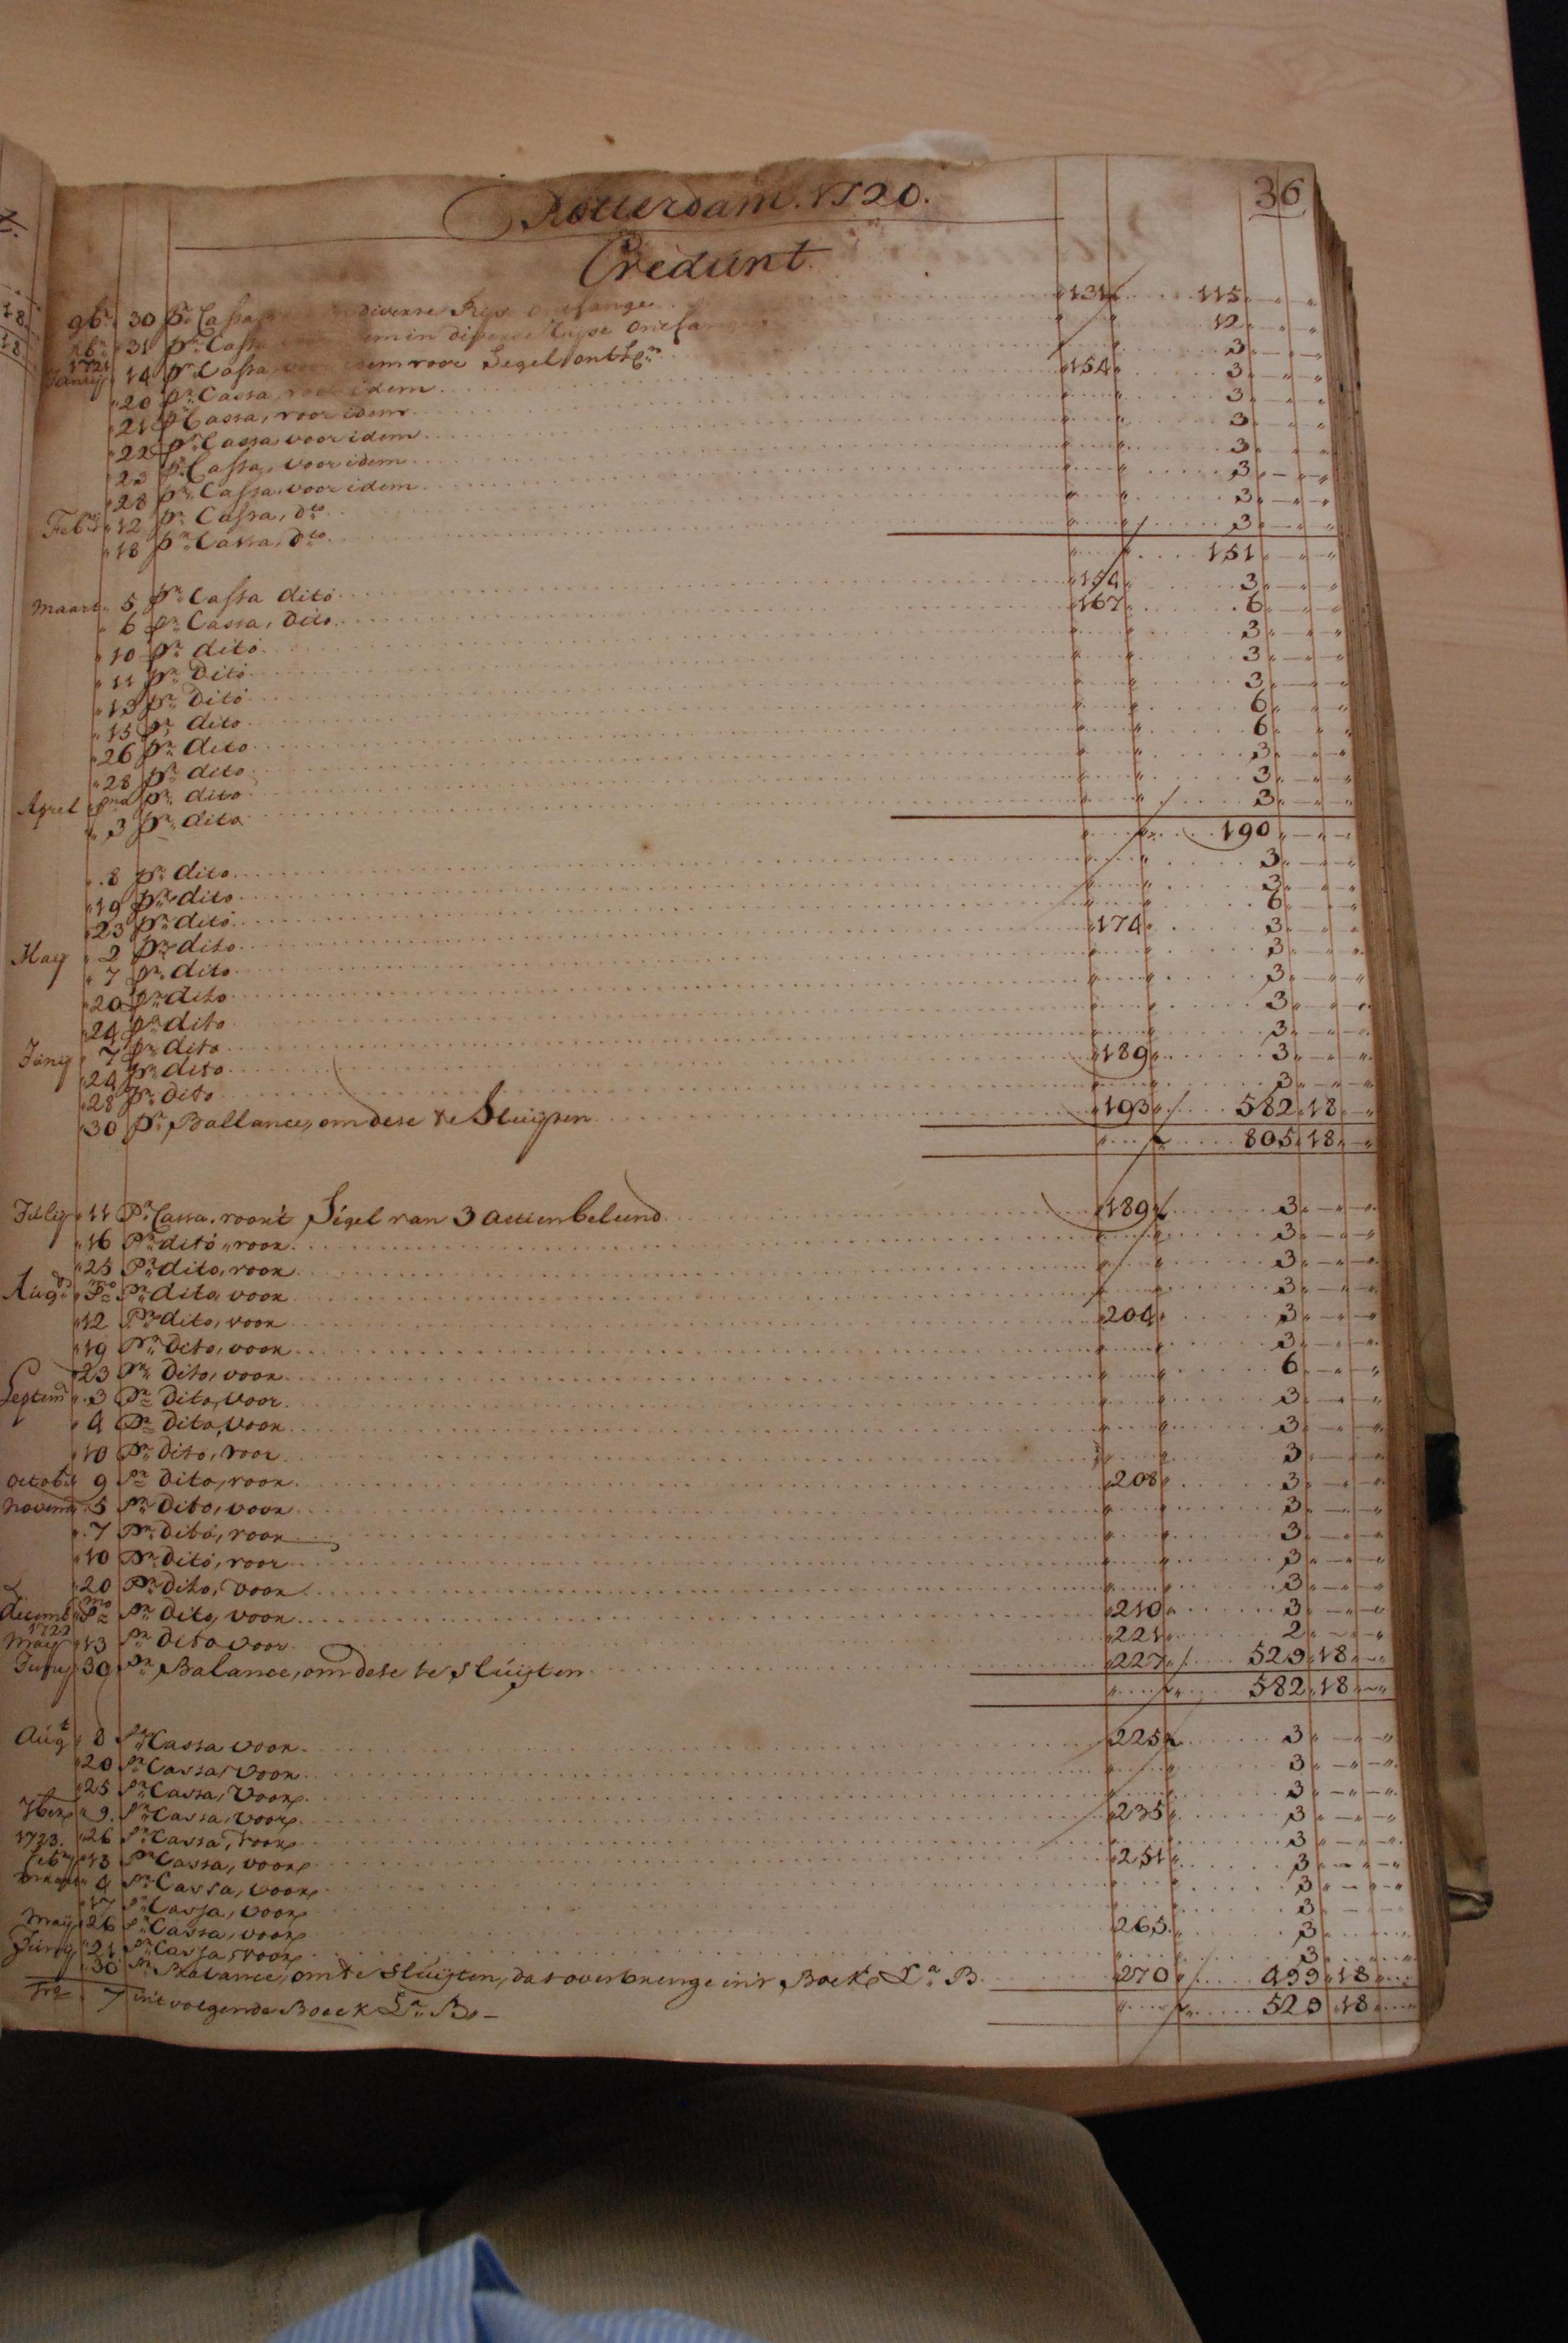 Rotterdam. 1720. 36
Credunt
9br. 30 Pr. Cassa diverse Reys ontfangen 131 115
Xbr. 31 pr. Cassa in diverse Reyse ontfangen 12
1721 Januarij 14 pr. Cassa, voor idem voor Segel ontf 3
20 pr. Cassa, voor idem 154 3
21 pr Cassa, voor idem 3
22 pr. Cassa voor idem 3
23 pr. Cassa, voor idem 3
28 pr. Cassa, voor idem 3
Febr. 12 pr. Cassa, dco 3
18 pr. Cassa, dco 3
151
Maart 5 pr. Cassa dito 154 3
6 pr. Cassa, dito 167 6
10 pr. dito 3
11 pr. Dito 3
13 pr. Dito 3
15 pr. dito 6
26 pr. dito 6
28 pr. dito 3
April pmo pr. dito 3
3 pr. dito 3
190
8 pr. dito 3
19 pr. dito 3
23 pr. dito 6
May 2 pr. dito 174 3
7 pr. dito 3
20 pr. dito 3
24 pr. dito 3
Junij 7 pr. dito 3
24 pr. dito 189 3
28 pr. dito 3
30 pr. Ballance, om dese te Sluijten 193 582 18
805 18
Julij 11 Pr. Cassa. voor't Segel van 3 actien belund 189 3
16 Pr. dito, voor 3
25 Pr. dito, voor 3
Aug. Pmo Pr. dito, voor 3
12 Pr. dito, voor 204 3
19 Pr. dito, voor 3
23 Pr. Dito, voor 6
Septem 3 Pr. Dito, voor 3
4 Pr. Dito, voor 3
10 Pr. Dito, voor 3
Octob. 9 Pr. Dito, voor 208 3
Novem 5 Pr. Dito, voor 3
7 Pr. Dito, voor 3
10 Pr. Dito, voor 3
20 Pr. Dito, voor 3
Decemb Pmo Pr. Dito, voor 210 3
1722 May 13 Pr. Dito voor 221 2
Juny 30 Pr. Balance, om dese te sluijten 227 529 18
582 18
Augt 8 Pr. Cassa voor 225 3
20 Pr. Cassa, voor 3
25 Pr. Cassa, voor 3
7ber 9 Pr. Cassa, voor 235 3
1723. 26 Pr. Cassa, voor 3
Feb 13 Pr. Cassa, voor 251 3
Maart 4 Pr. Cassa, voor 3
17 Pr. Cassa, voor 3
May 26 Pr. Cassa, voor 265 3
Juny 21 Pr. Cassa, voor 3
30 Pr. Balance, om te sluijten, dat overbrenge in't Boek La B 270 499 18
7 in't volgende Boeck La B 529 18